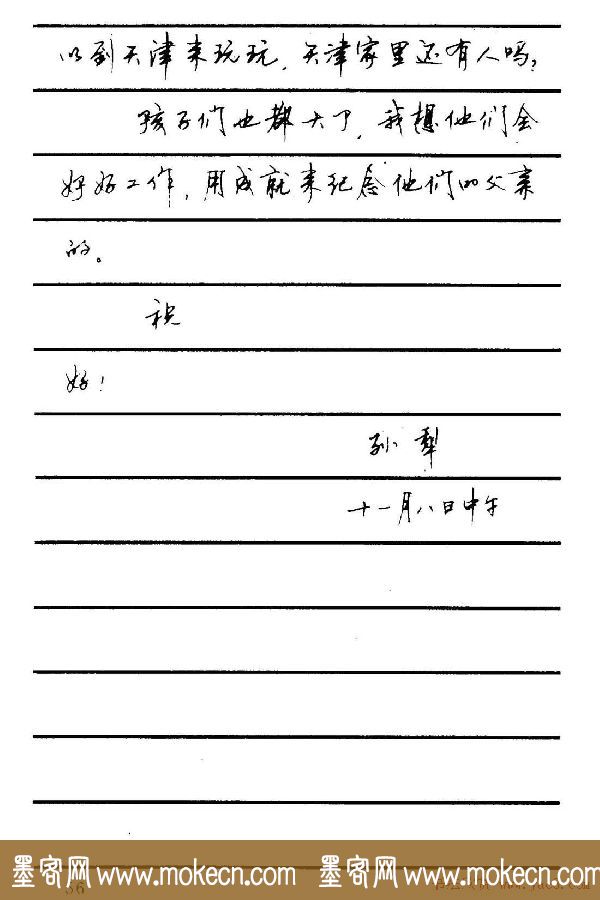 以到天津来玩玩，天津家里还有人吗？
孩子们也都大了，我想他们会
好好工作，用成就来纪念他们的父亲
的。
祝
好！
孙犁
十一月八日中午
墨客网 www.mokecn.com 墨客网 www.mokecn.com
56